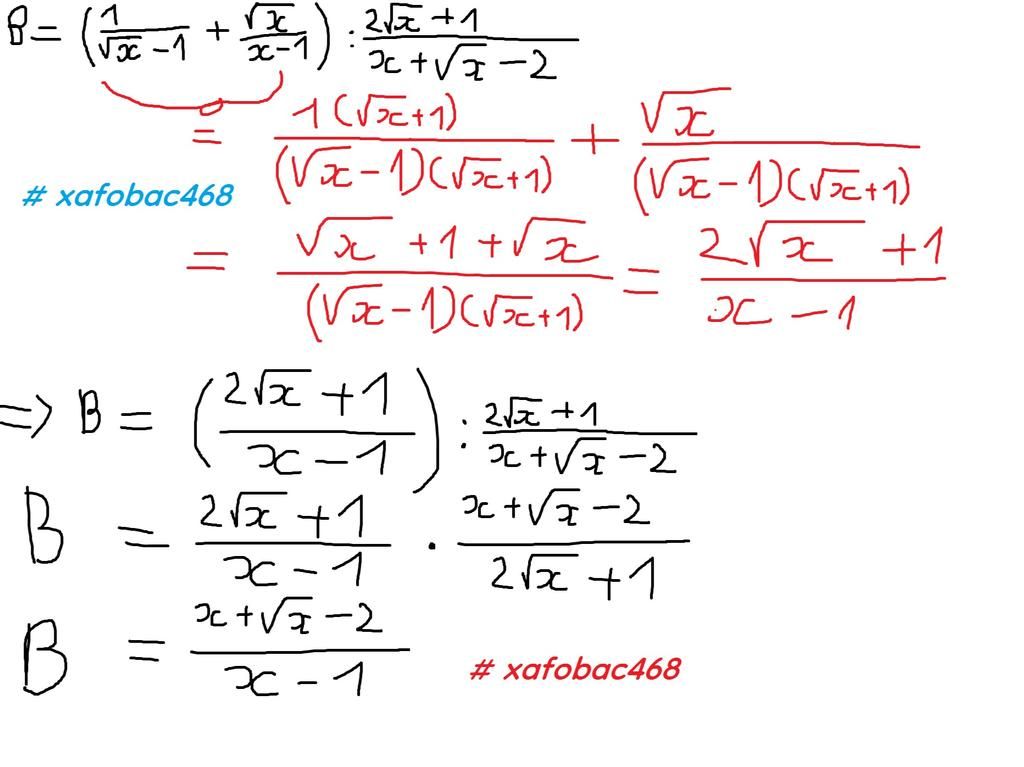 B = (1/(√x − 1) + √x/(x − 1)) : (2√x + 1)/(x + √x − 2)
= 1(√x + 1)/((√x − 1)(√x + 1)) + √x/((√x − 1)(√x + 1))
# xafobac468
= (√x + 1 + √x)/((√x − 1)(√x + 1)) = (2√x + 1)/(x − 1)
=> B = ((2√x + 1)/(x − 1)) : (2√x + 1)/(x + √x − 2)
B = (2√x + 1)/(x − 1) . (x + √x − 2)/(2√x + 1)
B = (x + √x − 2)/(x − 1)
# xafobac468